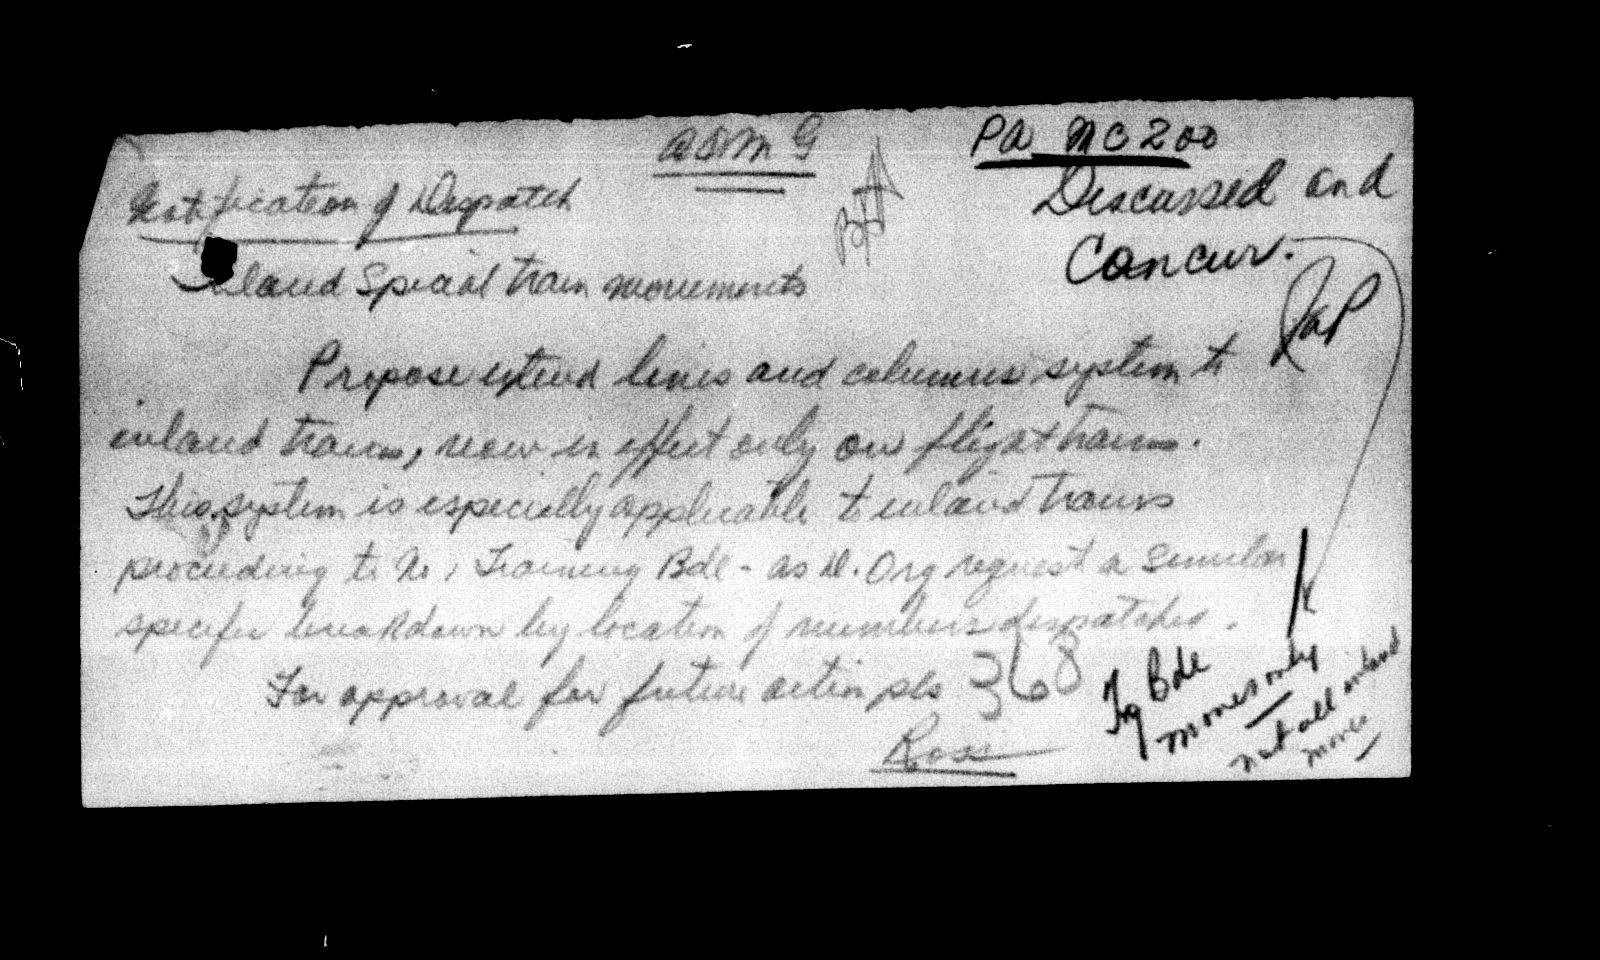 ADM G
PA MC 200
Notification of Dispatch
Discussed and
Concur.
Inland Special train movements
JAP
Propose extend lines and columns system to
inland trains, now in effect only on flight trains.
This system is especially applicable to inland trains
proceeding to No 1 Training Bde - as D. Org request a similar
specific breakdown by location of numbers dispatched.
For approval for future action pls
368
Ross
Trg Bde
moves only
not all inland
moves